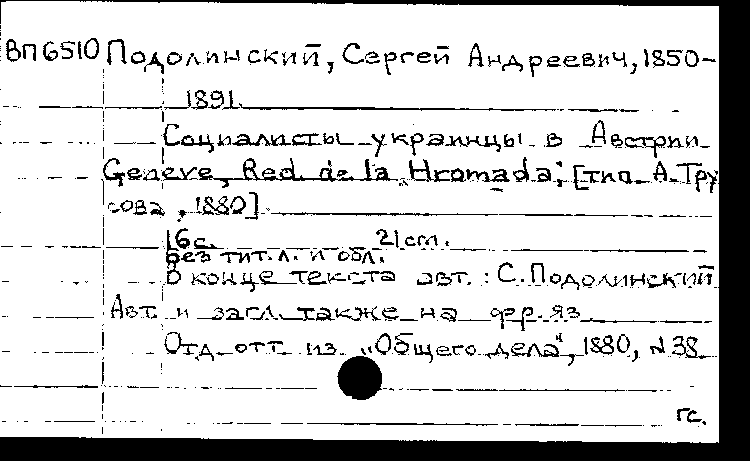 ВП6510 Подолинский, Сергей Андреевич, 1850-
1891.
Социалисты украинцы в Австрии
Geneve, Red. de la „Hromada; [тип. А. Тру
сова, 1880].
16с. 21см.
Без тит. л. и обл.
В конце текста авт.: С. Подолинский
Авт. и загл. также на фр. яз.
Отд. отт. из „Общего дела", 1880, N 38.
гс.